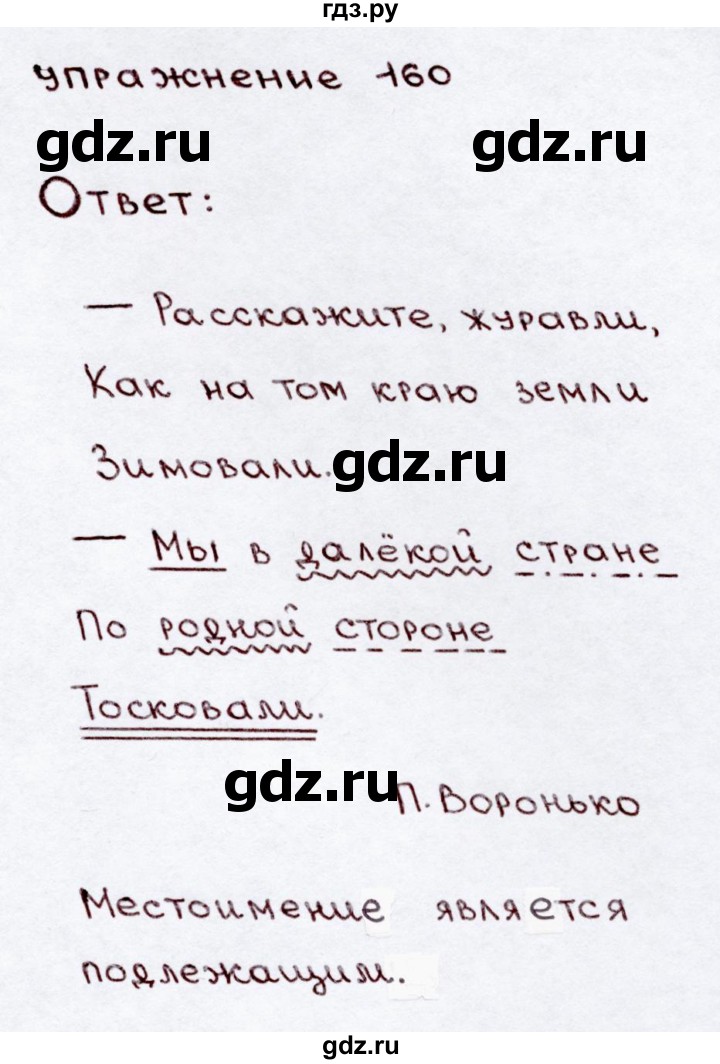 гдз.ру
упражнение 160
gdz.ru gdz.ru
Ответ:
— Расскажите, журавли,
Как на том краю земли
Зимовали. gdz.ru
— Мы в далёкой стране
По родной стороне
Тосковали.
gdz.ru
П. Воронько
Местоимение является
подлежащим.
gdz.ru